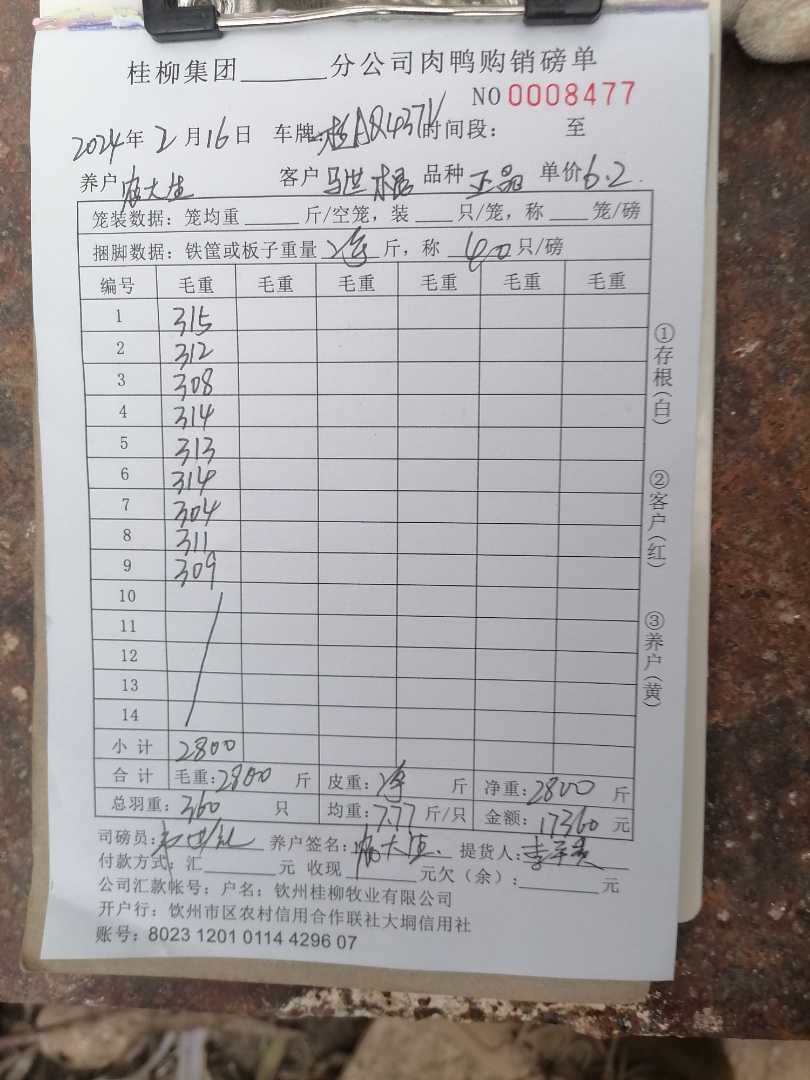 桂柳集团______分公司肉鸭购销磅单
NO 0008477
2024年2月16日 车牌: 时间段: 至
养户 客户 马世木 品种 正品 单价6.2
笼装数据：笼均重_____斤/空笼，装___只/笼，称___笼/磅
捆脚数据：铁筐或板子重量 斤，称 40 只/磅
编号 毛重 毛重 毛重 毛重 毛重 毛重
1 315
2 312
3 308
4 314
5 313
6 314
7 304
8 311
9 309
10
11
12
13
14
小计 2800
合计 毛重:2800 斤 皮重: 斤 净重:2800 斤
总羽重:360 只 均重:7.77斤/只 金额:17360元
司磅员: 养户签名: 提货人:
付款方式：汇______元 收现______元欠（余）:______元
公司汇款帐号：户名：钦州桂柳牧业有限公司
开户行：饮州市区农村信用合作联社大垌信用社
账号：8023 1201 0114 4296 07
①存根(白)
②客户(红)
③养户(黄)